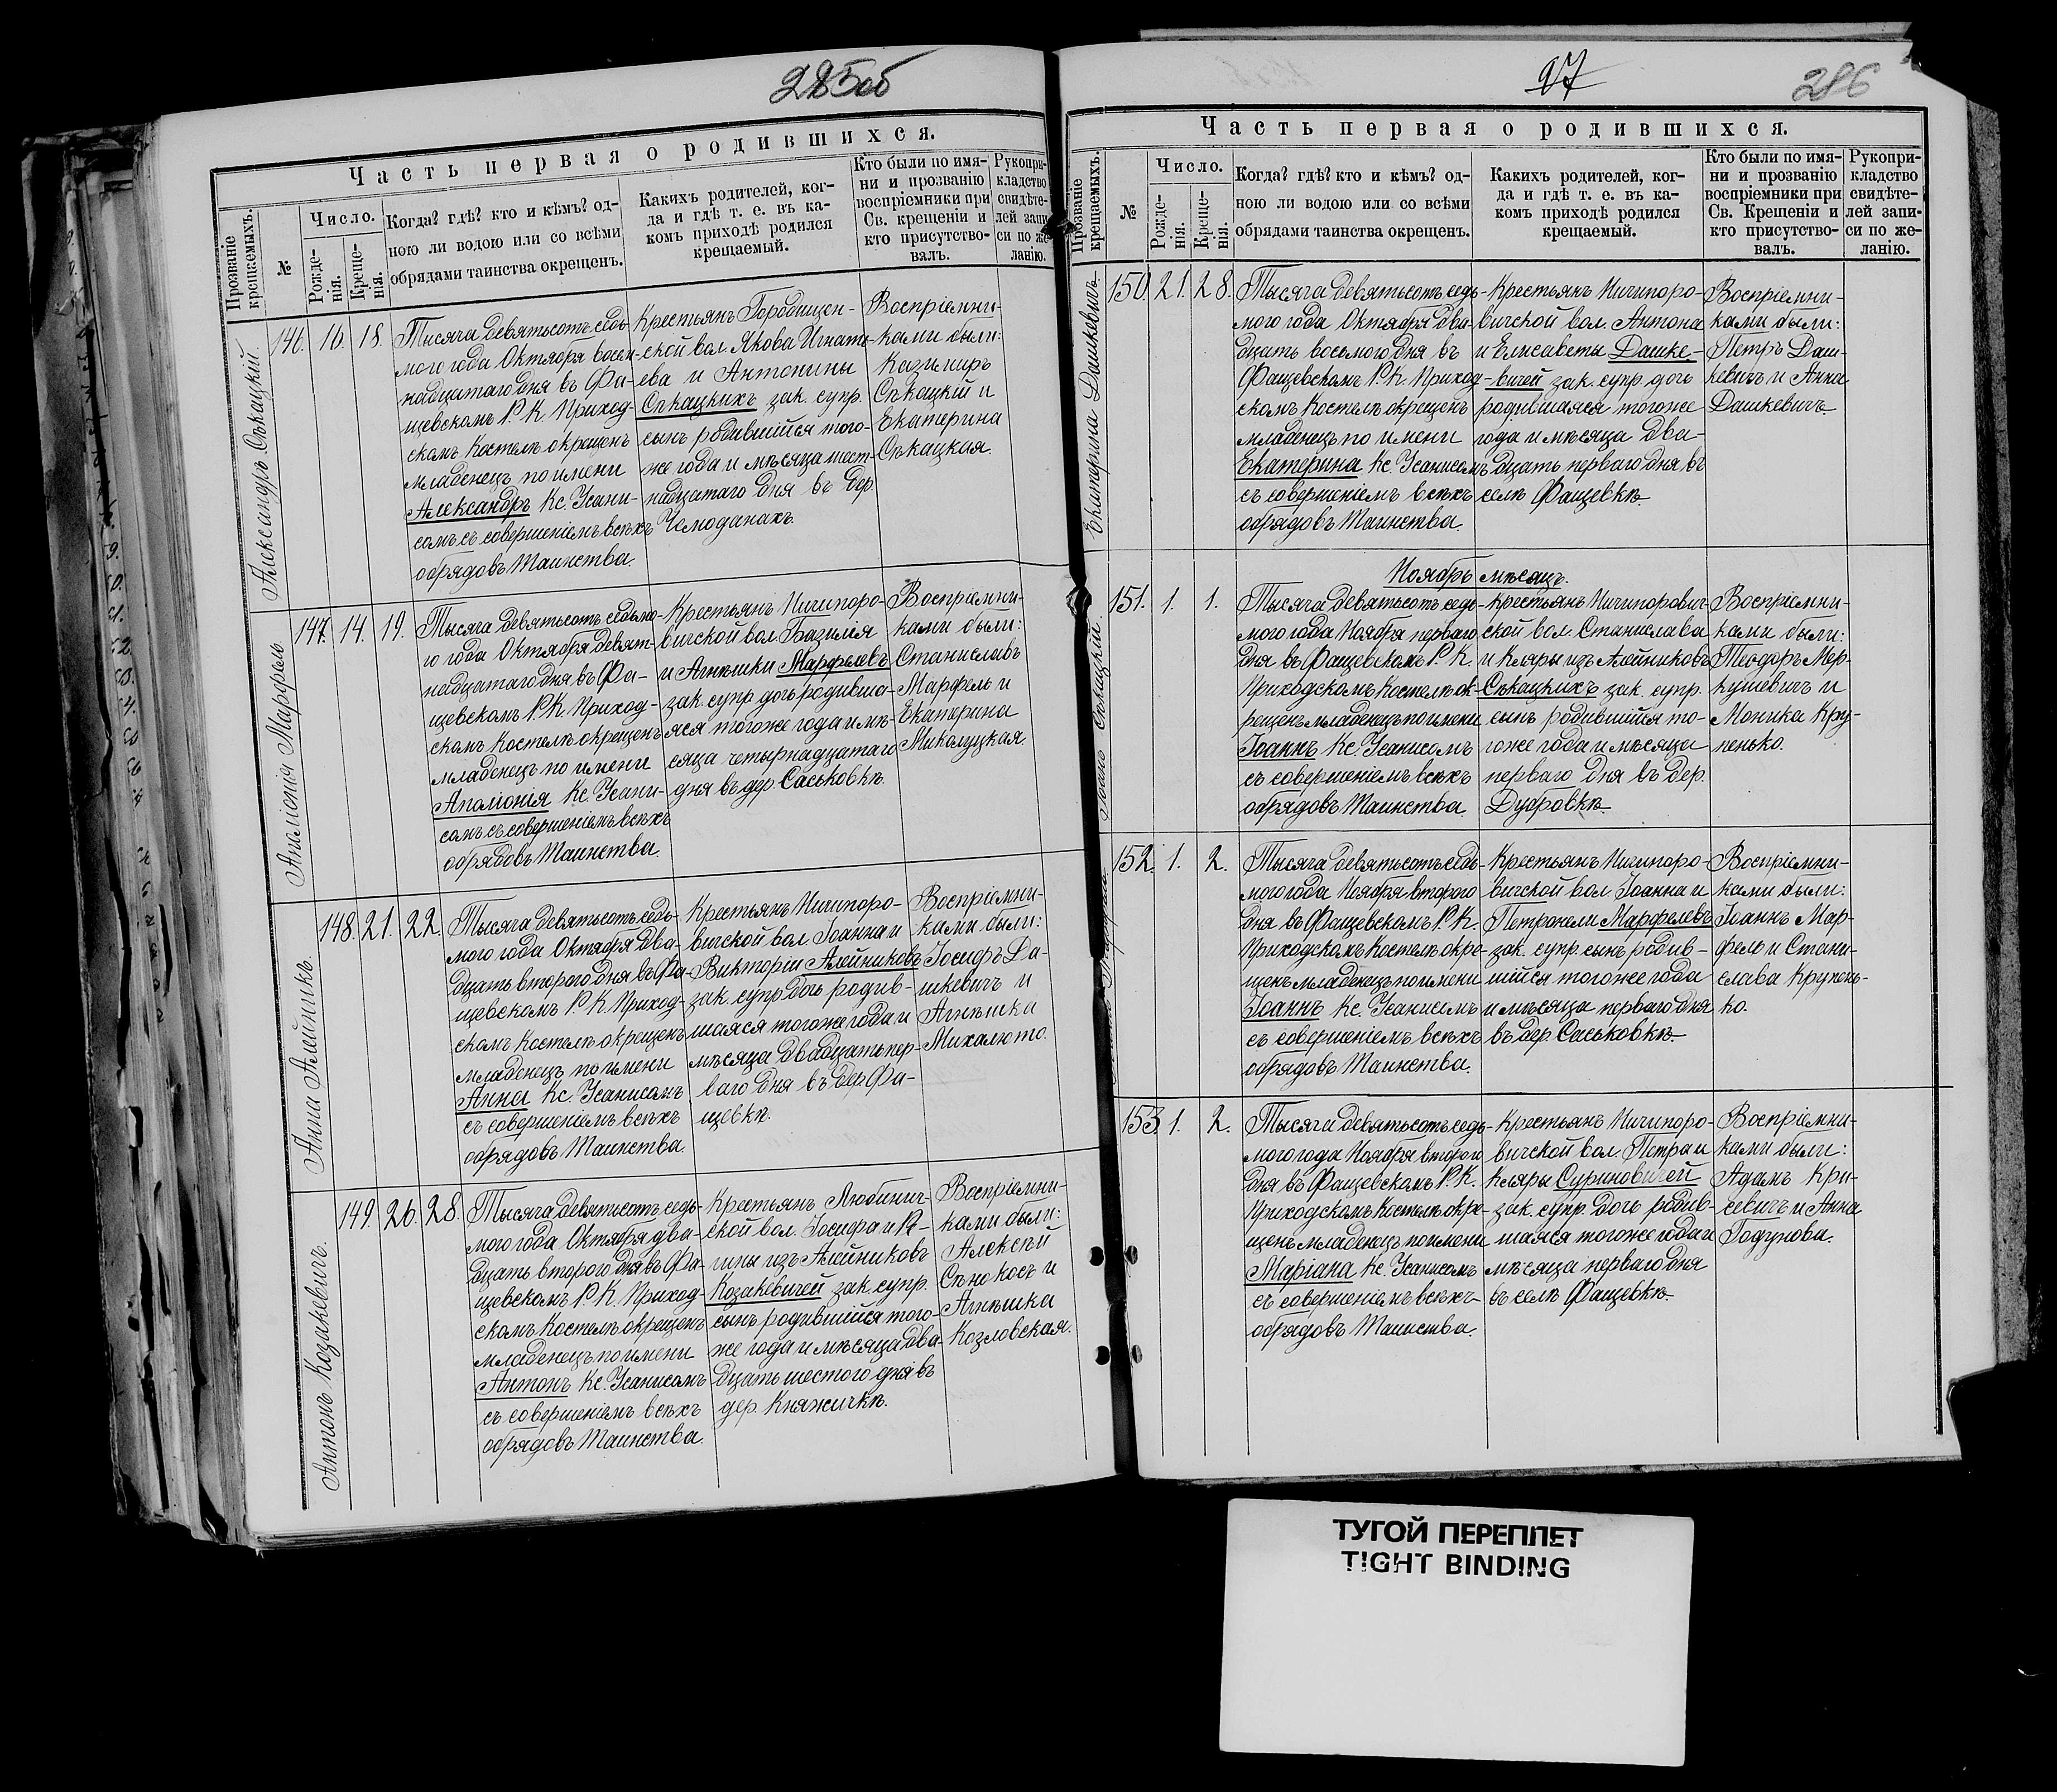 285об
Часть первая о родившихся.
Прозваніе крещаемыхъ.
№
Число.
Рожде-
нія.
Креще-
нія.
Когда? гдѣ? кто и кѣмъ? од-
ною ли водою или со всѣми
обрядами таинства окрещенъ.
Какихъ родителей, ког-
да и гдѣ т. е. въ ка-
комъ приходѣ родился
крещаемый.
Кто были по имя-
ни и прозванію
воспріемники при
Св. крещеніи и
кто присутство-
валъ.
Рукопри-
кладство
свидѣте-
лей запи-
си по же-
ланію.
Александръ Сѣкацкій.
146. 16. 18.
Тысяча девятьсотъ седь-
мого года Октября восем-
надцатаго дня въ Фа-
щевскомъ Р. К. Приход-
скомъ Костелѣ окрещенъ
младенецъ по имени
Александръ Кс. Усани-
сомъ съ совершеніемъ всѣхъ
обрядовъ Таинства.
Крестьянъ Городищен-
ской вол. Якова Игнать-
ева и Антонины
Сѣкацкихъ зак. супр.
сынъ родившійся того-
же года и мѣсяца шест-
надцатаго дня въ дер.
Чемоданахъ.
Воспріемни-
ками были:
Казимиръ
Сѣкацкій и
Екатерина
Сѣкацкая.
Аполіонія Марфель.
147. 14. 19.
Тысяча девятьсотъ седьмо-
го года Октября девят-
надцатаго дня въ Фа-
щевскомъ Р. К. Приход-
скомъ Костелѣ окрещенъ
младенецъ по имени
Аполіонія Кс. Усани-
сомъ съ совершеніемъ всѣхъ
обрядовъ Таинства.
Крестьянъ Ничипоро-
вичской вол. Базилія
и Агнѣшки Марфелевъ
зак. супр. дочь родивша-
яся тогоже года и мѣ-
сяца четырнадцатаго
дня въ дер. Саськовкѣ.
Воспріемни-
ками были:
Станиславъ
Марфель и
Екатерина
Миколуцкая.
Анна Алейникъ.
148. 21. 22.
Тысяча девятьсотъ седь-
мого года Октября два-
дцать второго дня въ Фа-
щевскомъ Р. К. Приход-
скомъ Костелѣ окрещенъ
младенецъ по имени
Анна Кс. Усанисомъ
съ совершеніемъ всѣхъ
обрядовъ Таинства.
Крестьянъ Ничипоро-
вичской вол. Іоанна и
Викторіи Алейниковъ
зак. супр. дочь родив-
шаяся тогоже года и
мѣсяца двадцать пер-
ваго дня въ дер. Фа-
щевкѣ.
Воспріемни-
ками были:
Іосифъ Да-
шкевичъ и
Агнѣшка
Михалюто.
Антонъ Козакевичъ.
149. 26. 28.
Тысяча девятьсотъ седь-
мого года Октября два-
дцать второго дня въ Фа-
щевскомъ Р. К. Приход-
скомъ Костелѣ окрещенъ
младенецъ по имени
Антонъ Кс. Усанисомъ
съ совершеніемъ всѣхъ
обрядовъ Таинства.
Крестьянъ Любинич-
ской вол. Іосифа и
изъ Алейниковъ
Козакевичей зак. супр.
сынъ родившійся того-
же года и мѣсяца два-
дцать шестого дня въ
дер. Княжичкѣ.
Воспріемни-
ками были:
Алексѣй
Сѣнокосъ и
Агнѣшка
Козловская.
97
286
Часть первая о родившихся.
Прозваніе крещаемыхъ.
№
Число.
Рожде-
нія.
Креще-
нія.
Когда? гдѣ? кто и кѣмъ? од-
ною ли водою или со всѣми
обрядами таинства окрещенъ.
Какихъ родителей, ког-
да и гдѣ т. е. въ ка-
комъ приходѣ родился
крещаемый.
Кто были по имя-
ни и прозванію
воспріемники при
Св. Крещеніи и
кто присутство-
валъ.
Рукопри-
кладство
свидѣте-
лей запи-
си по же-
ланію.
Екатерина Дашкевичъ.
150. 21. 28.
Тысяча девятьсотъ седь-
мого года Октября два-
дцать восьмого дня въ
Фащевскомъ Р. К. Приход-
скомъ Костелѣ окрещенъ
младенецъ по имени
Екатерина Кс. Усанисомъ
съ совершеніемъ всѣхъ
обрядовъ Таинства.
Крестьянъ Ничипоро-
вичской вол. Антона
и Елисаветы Дашке-
вичей зак. супр. дочь
родившаяся тогоже
года и мѣсяца два-
дцать перваго дня въ
селѣ Фащевкѣ.
Воспріемни-
ками были:
Петръ Даш-
кевичъ и Анна
Дашкевичъ.
Ноябрь мѣсяцъ.
Іоаннъ Сѣкацкій.
151. 1. 1.
Тысяча девятьсотъ седь-
мого года Ноября перваго
дня въ Фащевскомъ Р. К.
Приходскомъ Костелѣ ок-
рещенъ младенецъ по имени
Іоаннъ Кс. Усанисомъ
съ совершеніемъ всѣхъ
обрядовъ Таинства.
Крестьянъ Ничипорович-
ской вол. Станислава
и Кляры изъ Алейниковъ
Сѣкацкихъ зак. супр.
сынъ родившійся то-
гоже года и мѣсяца
перваго дня въ дер.
Дубровкѣ.
Воспріемни-
ками были:
Теодоръ Мер-
кушевичъ и
Моника Кру-
пенько.
152. 1. 2.
Тысяча девятьсотъ седь-
мого года Ноября второго
дня въ Фащевскомъ Р. К.
Приходскомъ Костелѣ окре-
щенъ младенецъ по имени
Іоаннъ Кс. Усанисомъ
съ совершеніемъ всѣхъ
обрядовъ Таинства.
Крестьянъ Ничипоро-
вичской вол. Іоанна и
Петронели Марфелевъ
зак. супр. сынъ родив-
шійся тогоже года
и мѣсяца перваго дня
въ дер. Саськовкѣ.
Воспріемни-
ками были:
Іоаннъ Мар-
фель и Стани-
слава Крупень-
ко.
153. 1. 2.
Тысяча девятьсотъ седь-
мого года Ноября второго
дня въ Фащевскомъ Р. К.
Приходскомъ Костелѣ окре-
щенъ младенецъ по имени
Маріана Кс. Усанисомъ
съ совершеніемъ всѣхъ
обрядовъ Таинства.
Крестьянъ Ничипоро-
вичской вол. Петра и
Кляры Суриновичей
зак. супр. дочь родив-
шаяся тогоже года и
мѣсяца перваго дня
въ селѣ Фащевкѣ.
Воспріемни-
ками были:
Адамъ Кри-
севичъ и Анна
Годунова.
ТУГОЙ ПЕРЕПЛЕТ
TIGHT BINDING